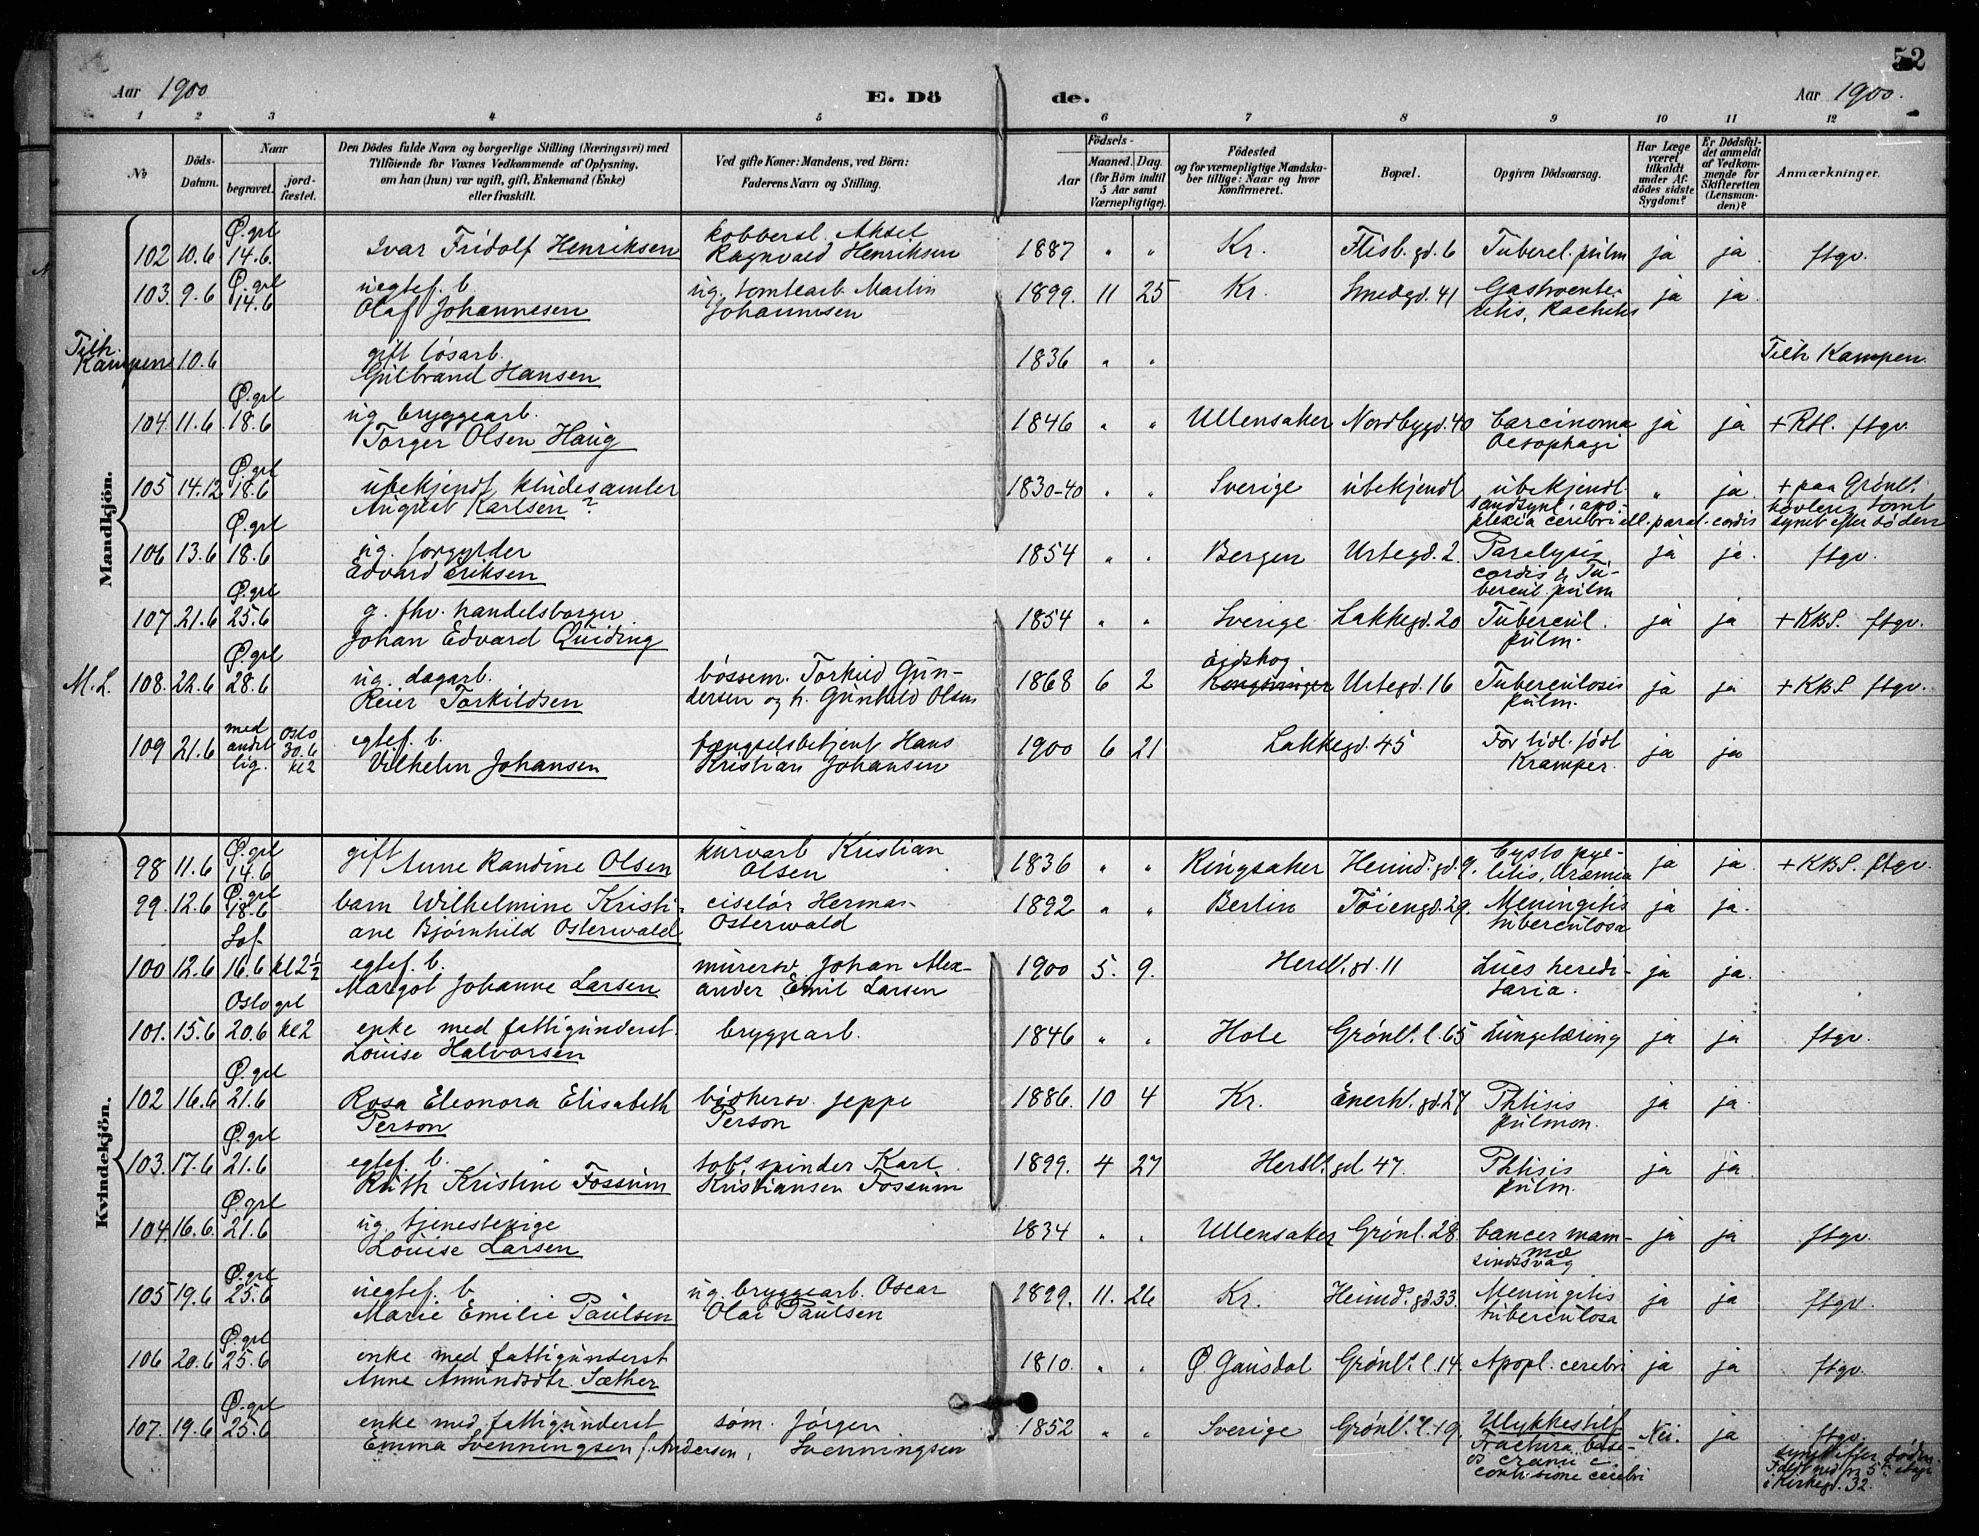 52
Aar 1900
E. Dö
de.
Aar 1900.
1 2 3 4 5 6 7 8 9 10 11 12
No
Döds-
Datum.
Naar
begravet.
jord-
fæstet.
Den Dödes fulde Navn og borgerlige Stilling (Næringsvei) med
Tilföiende for Voxnes Vedkommende af Oplysning,
om han (hun) var ugift, gift, Enkemand (Enke)
eller fraskilt.
Ved gifte Koner: Mandens, ved Börn:
Faderens Navn og Stilling.
Födsels-
Aar
Maaned. Dag.
(for Börn indtil
5 Aar samt
Værnepligtige).
Födested
og for værnepligtige Mandska-
ber tillige: Naar og hvor
konfirmeret.
Bopæl.
Opgiven Dödsaarsag.
Har Læge
været
tilkaldt
under Af-
dödes sidste
Sygdom?
Er Dödsfal-
det anmeldt
af Vedkom-
mende for
Skifteretten
(Lensman-
den)?
Anmærkninger.
Mandkjön.
Ø. grl kobbersl. Aksel
102 10.6 14.6. Ivar Fridolf Henriksen Ragnvald Henriksen 1887 " " Kr. Flisb. gd. 6 Tubercl. pulm ja ja ftgv.
Ø. grl uegtef. b. ug. tomtearb. Martin Gastroente-
103. 9.6 14.6 Olaf Johannesen Johannesen 1899. 11 25 Kr. Smedgd. 41 ritis, Rachitis ja ja
Tilh. gift løsarb.
Kampen 10.6 Gulbrand Hansen 1836 " " Tilh Kampen.
Ø. grl ug. bryggearb.
104. 11.6 18.6 Torger Olsen Haug 1846 " " Ullensaker Nordbygd. 40 Carcinoma Oesophagi ja ja + RH. ftgv.
Ø. grl ubekjendt kludesamler
105 14.12 18.6 August Karlsen? 1830-40 " " Sverige ubekjendt ubekjendt " ja + paa Grønl.
sandsynl. apo-
plexia cerebri ell. paral. cordis tomt
synet efter døden
Ø. grl ug. forgylder
106 13.6 18.6 Edvard Eriksen 1854 " " Bergen Urtegd. 2. Paralysis ja ja. ftgv.
cordis & Tu-
bercul. pulm
Ø. grl g. fhv. handelsborger
107. 21.6 25.6 Johan Edvard Quiding 1854 " " Sverige Lakkegd. 20 Tubercul. pulm. ja ja + KBS. ftgv.
Ø. grl ug. dagarb. bøssem. Torkild Gun- Eidskog
M.L. 108. 22.6 28.6 Reier Torkildsen dersen og h. Gunhild Olsen 1868 6 2 Kongsvinger Urtegd. 16 Tuberculosis pulm. ja ja + KBS ftgv.
med Oslo
109 21.6 andet 30.6 egtef. b. fængselsbetjent Hans 1900 6 21 Lakkegd. 45 For tidl. født ja ja
lig. kl 2 Vilhelm Johansen Kristian Johansen Kramper.
Kvindekjön.
Ø. grl gift kurvarb Kristian Cysto pye-
98 11.6 14.6 Anne Randine Olsen Olsen 1836 " " Ringsaker Heimd. gd. 9. litis, Uræmia ja ja + KBS. ftgv.
Ø. grl
99. 12.6 18.6 barn Wilhelmine Kristi- ciselør Herman 1892 " " Berlin Tøiengd. 29. Meningitis ja ja.
ane Bjørnhild Osterwald Osterwald tuberculosa
Sof.
100 12.6 16.6 kl 2 1/2 egtef. b. murersv. Johan Alex- 1900 5. 9. Hersl. gd. 11 Lues heredi- ja ja.
Margot Johanne Larsen ander Emil Larsen taria.
Oslo grl
101. 15.6 20.6 kl 2 enke med fattigunderst. bryggearb. 1846 " " Hole Grønl. l. 65 Lungetæring ja ja ftgv.
Louise Halvorsen
Ø. grl
102 16.6 21.6 Rosa Eleonora Elisabeth bødkersv. Jeppe 1886. 10 4 Kr. Enerh. gd. 27 Phtisis ja ja.
Person Person pulmon.
Ø. grl
103. 17.6 21.6 egtef. b. tobs. spinder Karl 1899. 4 27 Hersl. gd 47. Phtisis ja ja.
Ruth Kristine Fossum Kristiansen Fossum pulm.
Ø. grl
104. 16.6. 21.6 ug. tjenestepige 1834 " " Ullensaker Grønl. 28. Cancer mam- ja ja ftgv.
Louise Larsen mæ
sindssvag
Ø. grl
105 19.6 25.6 uegtef. b ug. bryggearb. Oscar 1899. 11. 26 Kr. Heimd. gd. 33. Meningitis ja ja ftgv.
Marie Emilie Paulsen Olai Paulsen tuberculosa
Ø. grl
106 20.6 25.6 enke med fattigunderst 1810. " " Ø Gausdal Grønl. l. 14. Apopl. cerebri ja ja ftgv.
Anne Amundsdtr. Sæther
Ø. grl
107. 19.6 25.6 enke med fattigunderst søm. Jørgen 1852 " " Sverige Grønl. l. 19. Ulykkestilf. Nei. ja ftgv.
Emma Svenningsen f. Andersen, Svenningsen Fractura base- synet efter døden.
os cranii c.
contusione cerebri Kirkegd. 32.